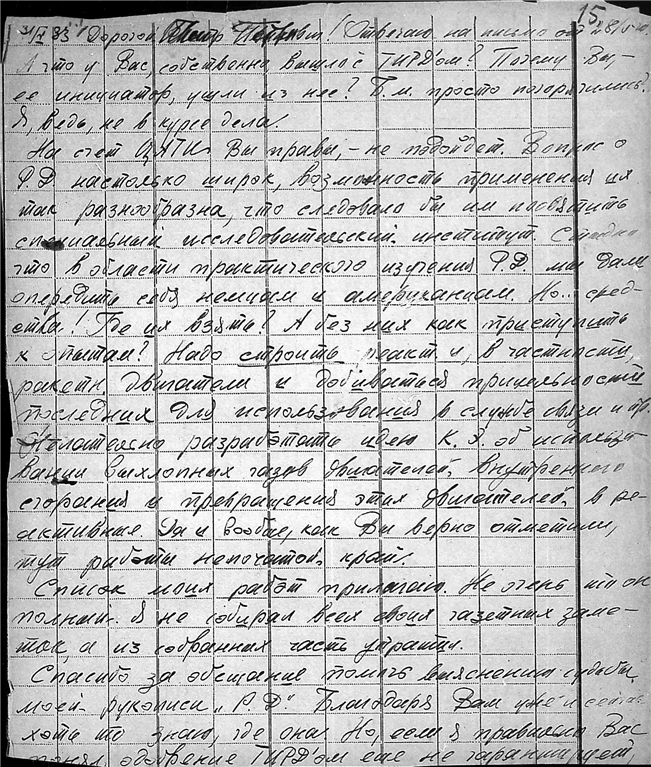 15.
31/V 33 Дорогой Петр Петрович! Отвечаю на письмо от 28/V
А что у Вас, собственно, вышло с ГИРД'ом? Почему Вы,-
ее инициатор, ушли из нее? Б.м. просто погорячились?
Я, ведь, не в курсе дела.
На счет ЦАГИ Вы правы, - не подойдет. Вопрос о
Р.Д. настолько широк, возможность применения их
так разнообразна, что следовало бы им посвятить
специальный исследовательский институт.
что в области практического изучения Р.Д. мы дали
опередить себя немцам и американцам. Но... сред-
ства! Где их взять? А без них как приступить
к опытам? Надо строить реакт. и, в частности,
ракетн. двигатели и добиваться прицельности
последних для использования в службе связи и пр.
Желательно разработать идею К.Э. об использо
вании выхлопных газов двигателей внутреннего
сгорания и превращения этих двигателей в ре-
активные. Да и вообще, как Вы верно отметили,
тут работы непочатой край.
Список моих работ прилагаю. Не очень то он
полный. Я не собирал всех своих газетных заме-
ток, а из собранных часть утратил.
Спасибо за обещание помочь выяснению судьбы
моей рукописи „Р.Д." Благодаря Вам уже и сейчас
хоть то знаю, где она. Но, если я правильно Вас
понял, одобрение ГИРД'ом еще не гарантирует,